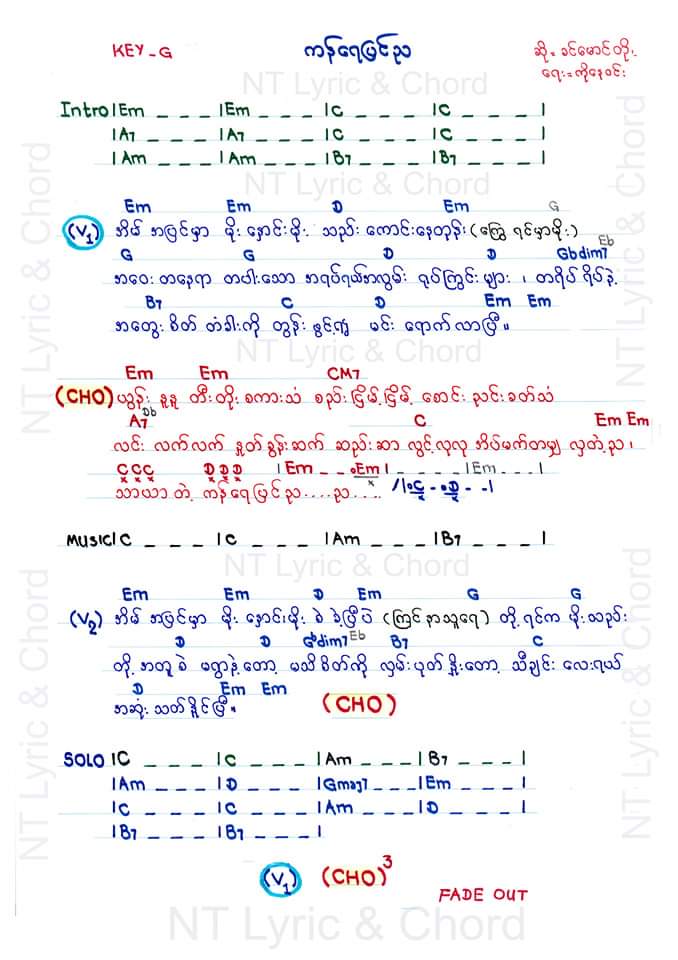 KEY-G ကန်ရေပြင်ည ဆို = ခင်မောင်တိုး
ရေး = ကိုနေဝင်း
NT Lyric & Chord
Intro |Em _ _ _ |Em _ _ _ |C _ _ _ |C _ _ _ |
|A7 _ _ _ |A7 _ _ _ |C _ _ _ |C _ _ _ |
|Am _ _ _ |Am _ _ _ |B7 _ _ _ |B7 _ _ _ |
NT Lyric & Chord
Em Em D Em G
(V1) အိမ် အပြင်မှာ မိုး နှောင်းမိုး သည်း ကောင်းနေတုန်း (ကြွေ ရင်မှာမိုး)
G G D D Gbdim7 Eb
အဝေး တနေရာ တပါးသော အရပ်ရယ်အလွမ်း ရုပ်ကြွင်း များ ၊ တရိပ် ရိပ်နဲ့
B7 C D Em Em
အတွေး စိတ် တံခါးကို တွန်း ဖွင့်လို့ မင်း ရောက် လာပြီ ။
NT Lyric & Chord
Em Em CM7
(CHO) ယွန်း နုနု တီးတိုး စကားသံ စည်းငြိမ့်ငြိမ့် စောင်း ညင်းခတ်သံ
A7 Db C Em Em
လင်း လက်လက် နှုတ်ခွန်းဆက် ဆည်းဆာ လွင့်လုလု အိပ်မက်တမျှ လှတဲ့ည ၊
C C C D D D |Em _ _ Em | _ _ _ _ |Em _ _ _ |
သာယာတဲ့ ကန်ရေပြင်ည .... ည .... / | C - D - - |
MUSIC |C _ _ _ |C _ _ _ |Am _ _ _ |B7 _ _ _ |
NT Lyric & Chord
Em Em D Em G G
(V2) အိမ် အပြင်မှာ မိုး နှောင်းမိုး စဲ ခဲ့ပြီပဲ (ကြင်နာသူရေ) တို့ ရင်က မိုးသည်း
D D G#dim7 Eb B7 C
တို့ အတူ စဲ မရွာနဲ့တော့ မသိစိတ်ကို လှမ်းပုတ်နှိုးတော့ သီချင်း လေးရယ်
D Em Em
အဆုံး သတ်နိုင်ပြီ ။ (CHO)
SOLO |C _ _ _ |C _ _ _ |Am _ _ _ |B7 _ _ _ |
|Am _ _ _ |D _ _ _ |Gmaj7 _ _ _ |Em _ _ _ |
|C _ _ _ |C _ _ _ |Am _ _ _ |D _ _ _ |
|B7 _ _ _ |B7 _ _ _ |
(V1) (CHO)3
FADE OUT
NT Lyric & Chord
NT Lyric & Chord
NT Lyric & Chord
NT Lyric & Chord
NT Lyric & Chord